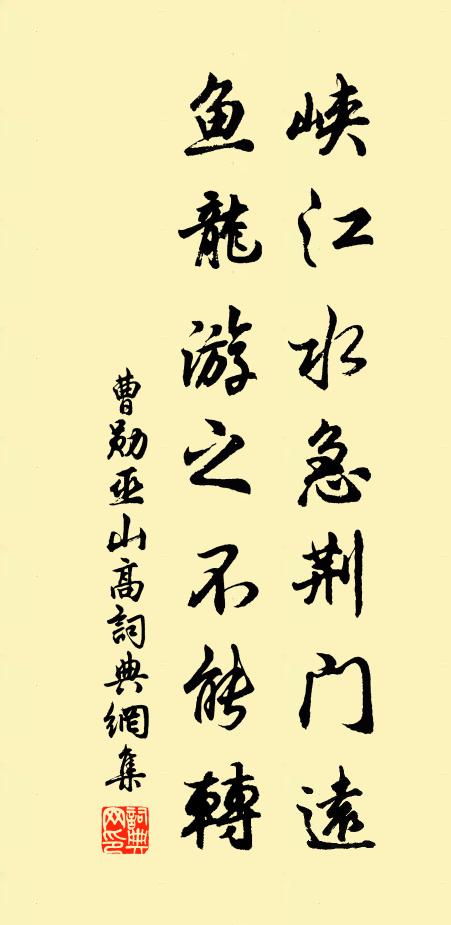 峡江水急荆门遠
鱼龍游之不能轉
曹勋巫山高詞典網集
詞典网印